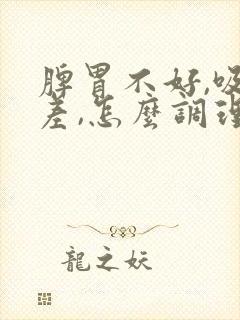 脾胃不好,吸
差,怎麼調理
龍之妖